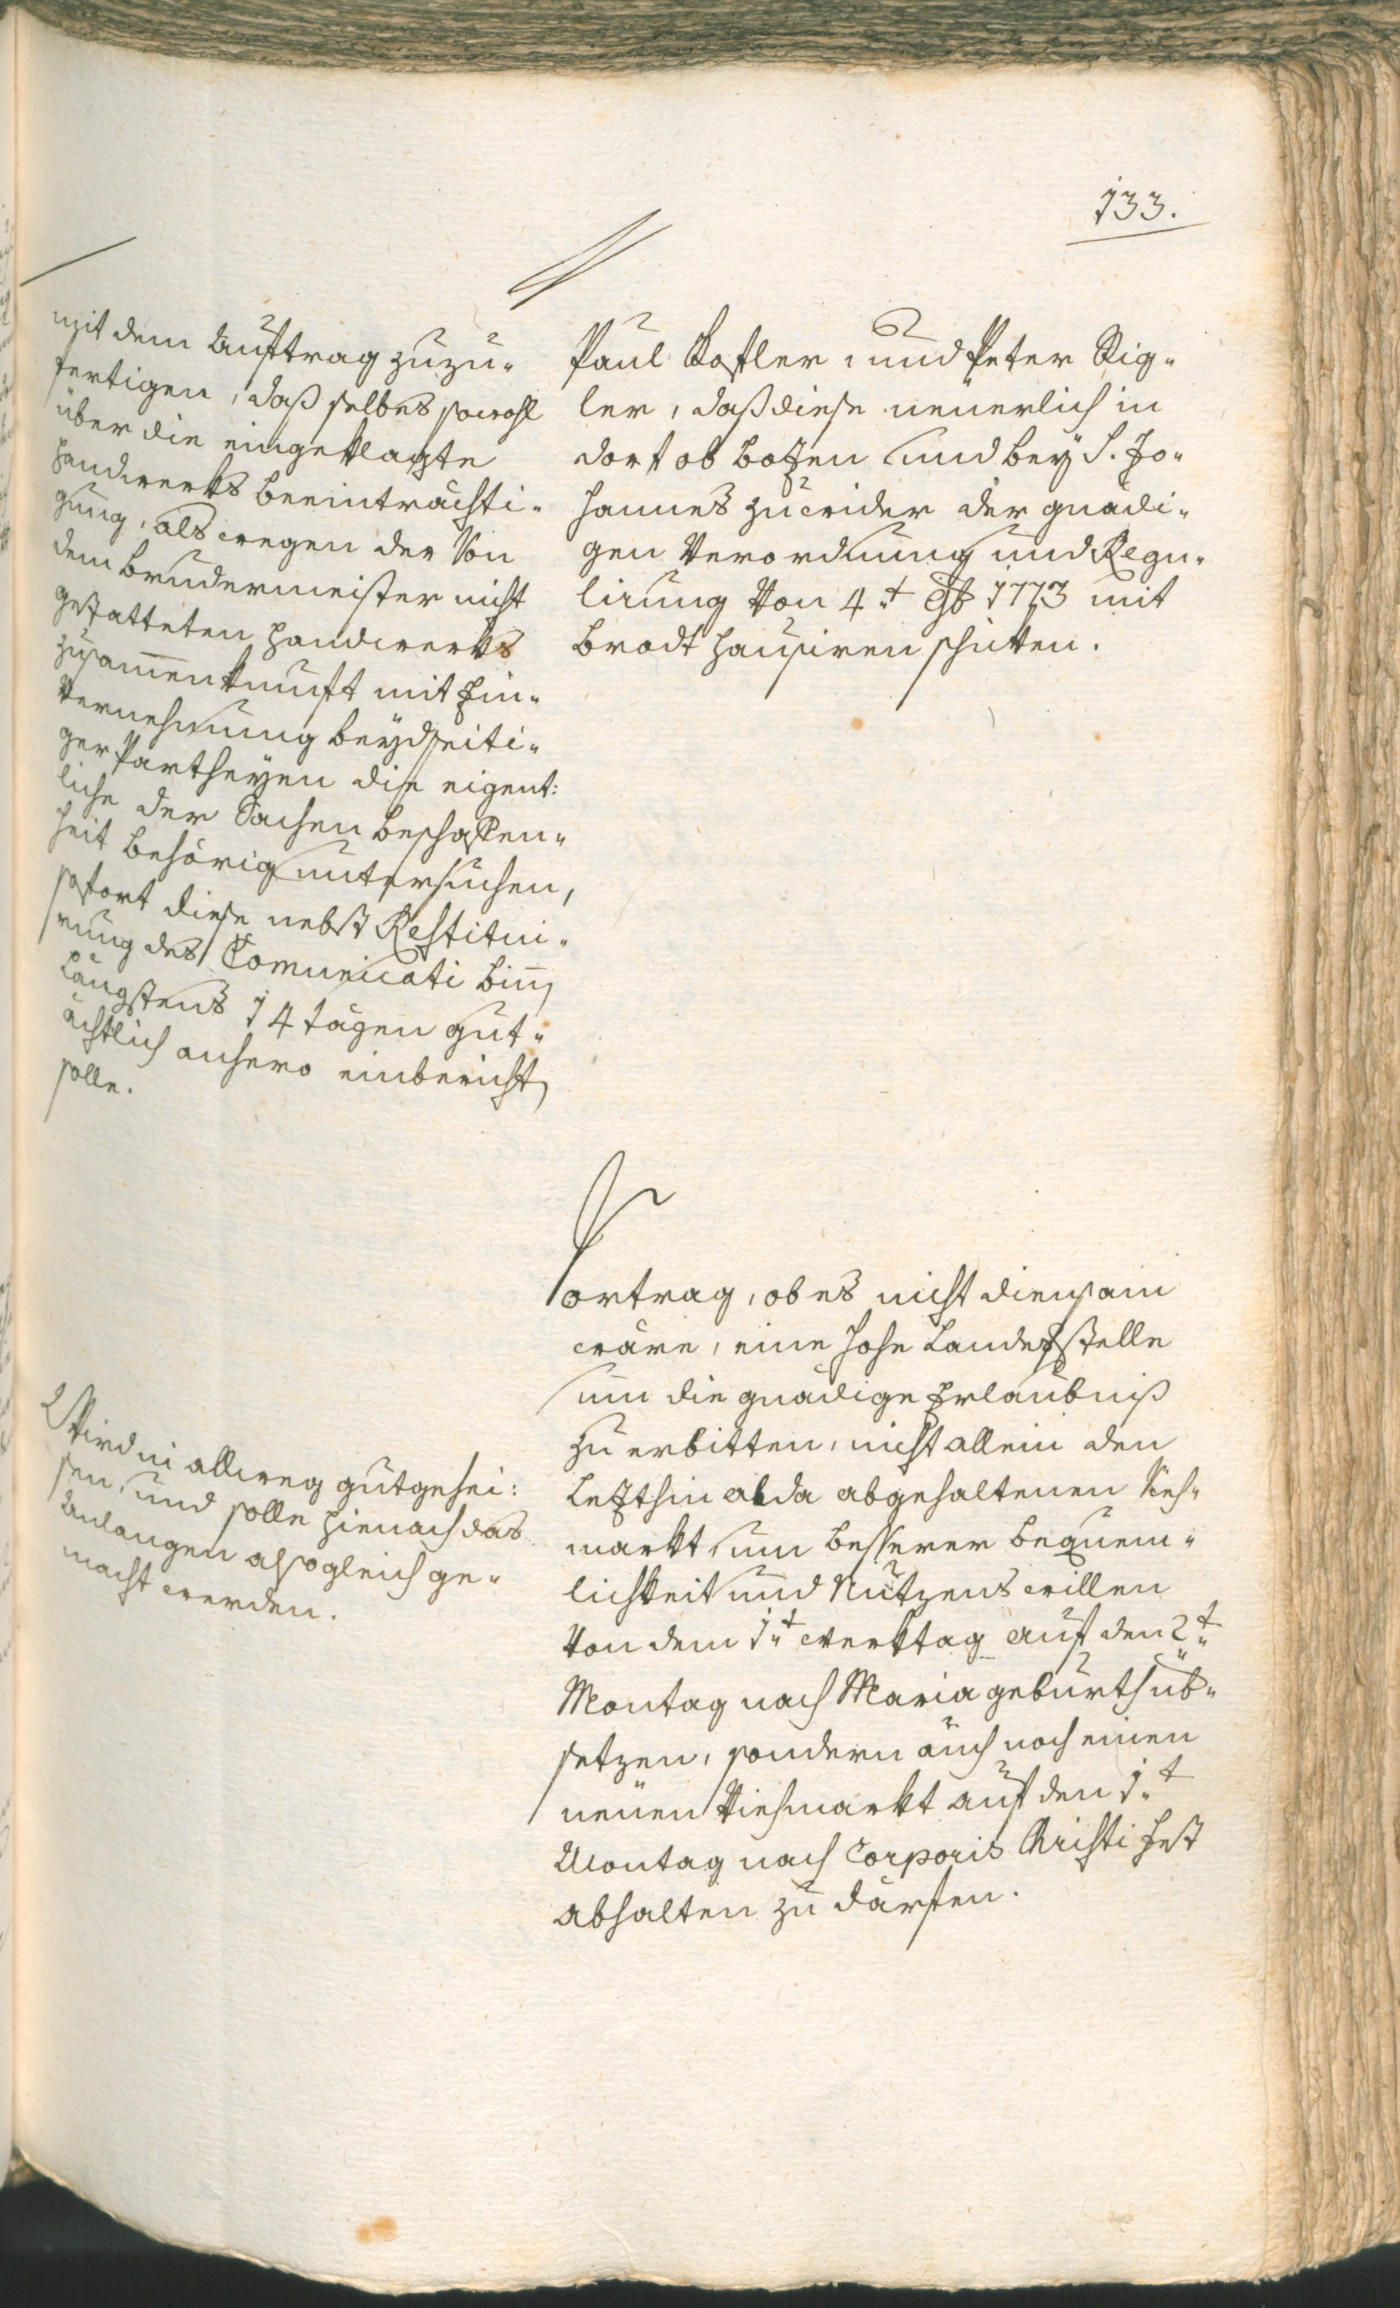 133.
mit dem Auftrag zuzu-
fertigen, daß selbes sowohl
über die eingeklagte
Handwerks beeinträchti-
gung, als wegen der Von
dem Brudermeister nicht
gestatteten Handwerks
zusammenkunft mit Ein-
vernehmung beydseiti-
ger Partheyen die eigent:
liche der Sachen beschaffen-
heit behörig untersuchen,
sofort diese nebst Restitui-
rung des Comunicati binn
Längstens 14 tägen gut-
ächtlich anhero einbericht
solle.
Paul Kofler, und Peter Rig-
ler, daß diese neuerlich in
dorf ob Bozen und bey S. Jo-
hannes zuwider der gnädi-
gen Verordnung und Regu-
lirung Von 4.t 1773 mit
Brodt hausiren schicken.
Vortrag, ob es nicht diensam
wäre, eine hohe Landesstelle
um die gnädige Erlaubniß
zu erbitten, nicht allein den
Lezthin alda abgehaltenen Vieh-
markt um besserer bequem-
lichkeit und Nutzens willen
Von dem 1.t Werktag auf den 2.t
Montag nach Maria geburth üb-
setzen, sondern auch noch einen
neuen Viehmarkt auf den 1.t
Montag nach Corporis Christi Fest
abhalten zu därfen.
Wird in allweg gutgehei:
sen, und solle hienach das
Anlangen alsogleich ge-
macht werden.